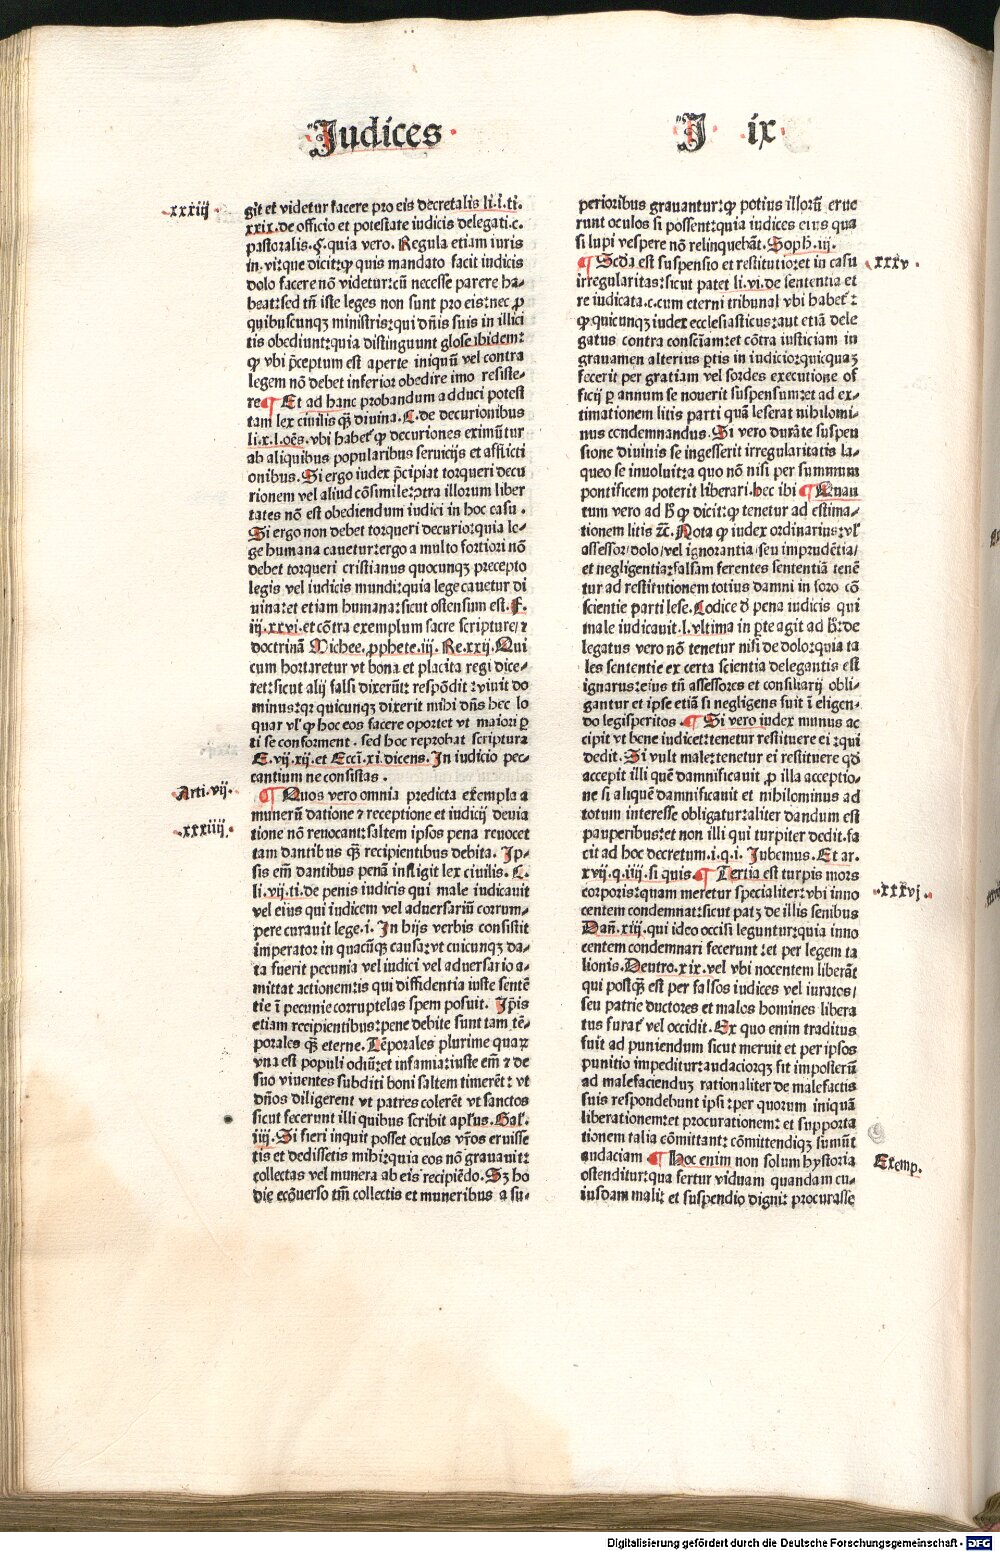 Judices
J ix
xxxiij
git et videtur facere pro eis decretalis li.i.ti.
xxix.de officio et potestate iudicis delegati.c.
pastoralis.§.quia vero. Regula etiam iuris
in.vi:que dicit:ꝙ quis mandato facit iudicis
dolo facere nō videtur:cū necesse parere ha⸗
beat:sed tñ iste leges non sunt pro eis:nec ꝓ
quibuscunqꝫ ministris:qui dñis suis in illici
tis obediunt:quia distinguunt glose ibidem:
ꝙ vbi p̄ceptum est aperte iniquū vel contra
legem nō debet inferior obedire imo resiste⸗
re¶ Et ad hanc probandum adduci potest
tam lex ciuilis qꝫ̄ diuina.C.de decurionibus
li.x.l.oēs.vbi habet᷑ ꝙ decuriones eximūtur
ab aliquibus popularibus seruicijs et afflicti
onibus.Si ergo iudex p̄cipiat torqueri decu
rionem vel aliud cōsimile:ↄtra illorum liber
tates nō est obediendum iudici in hoc casu.
Si ergo non debet torqueri decurio:quia le⸗
ge humana cauetur:ergo a multo fortiori nō
debet torqueri cristianus quocunqꝫ precepto
legis vel iudicis mundi:quia lege cauetur di
uina:et etiam humana:sicut ostensum est.F.
iij.xxvi.et cōtra exemplum sacre scripture/⁊
doctrinā Michee.ꝓphete.iij.Re.xxij.Qui
cum hortaretur vt bona et placita regi dice⸗
ret:sicut alij falsi dixerūt: respōdit:viuit do
minus:qꝛ quicunqꝫ dixerit mihi dñs hec lo
quar vl̓ ꝙ hoc eos facere oportet vt maiori ꝑ
ti se conforment. sed hoc reprobat scriptura
E.vij.xij.et Ecci.xi.dicens.In iudicio pec⸗
cantium ne consistas.
Arti.vij.
¶ Quos vero omnia predicta exempla a
xxxiiij.
munerū datione ⁊ receptione et iudicij deuia
tione nō reuocant:saltem ipsos pena reuocet
tam dantibus qꝫ̄ recipientibus debita. Ip⸗
sis em̄ dantibus penā infligit lex ciuilis. C.
li.vij.ti.de penis iudicis qui male iudicauit
vel eius qui iudicem vel aduersariū corrum⸗
pere curauit lege.i. In hijs verbis consistit
imperator in quacūqꝫ causa:vt cuicunqꝫ da⸗
ta fuerit pecunia vel iudici vel aduersario a⸗
mittat actionem:is qui diffidentia iuste sentē
tie ī pecunie corruptelas spem posuit. Ip̄is
etiam recipientibus:pene debite sunt tam tē⸗
porales qꝫ̄ eterne.Tēporales plurime quaꝝ
vna est populi odiū:et infamia:iuste em̄ ⁊ de
suo viuentes subditi boni saltem timerēt: vt
dños diligerent vt patres colerēt vt sanctos
sicut fecerunt illi quibus scribit apl̓us.Gal̓.
iiij.Si fieri inquit posset oculos vr̄os eruisse
tis et dedissetis mihi:quia eos nō grauauit:
collectas vel munera ab eis recipiēdo.Sꝫ ho
die ecōuerso tm̄ collectis et muneribus a su⸗
perioribus grauantur:ꝙ potius illorū erue
runt oculos si possent:quia iudices eius qua
si lupi vespere nō relinquebāt.Soph.iij.
¶ Scd̄a est suspensio et restitutio:et in casu
xxxv.
irregularitas:sicut patet li.vi.de sententia et
re iudicata.c.cum eterni tribunal vbi habet᷑:
ꝙ quicunqꝫ iudex ecclesiasticus:aut etiā dele
gatus contra conscīam:et cōtra iusticiam in
grauamen alterius ꝑtis in iudicio:quicquaꝫ
fecerit per gratiam vel sordes executione of
ficij ꝑ annum se nouerit suspensum:et ad ex⸗
timationem litis parti quā leserat nihilomi⸗
nus condemnandus.Si vero durāte suspen
sione diuinis se ingesserit irregularitatis la⸗
queo se inuoluit:a quo nō nisi per summum
pontificem poterit liberari.hec ibi ¶ Quan
tum vero ad hͦ ꝙ dicit:ꝙ tenetur ad estima⸗
tionem litis ⁊c̄. Nota ꝙ iudex ordinarius:vl̓
assessor/dolo/vel ignorantia/seu imprudētia/
et negligentia:falsam ferentes sententiā tenē
tur ad restitutionem totius damni in foro cō
scientie parti lese.Codice ď pena iudicis qui
male iudicauit.l.vltima in ꝑte agit ad hͦ:de
legatus vero nō tenetur nisi de dolo:quia ta
les sententie ex certa scientia delegantis est
ignarus:eius tñ assessores et consiliarij obli⸗
gantur et ipse etiā si negligens fuit ī eligen⸗
do legisperitos.¶ Si vero iudex munus ac
cipit vt bene iudicet:tenetur restituere ei:qui
dedit.Si vult male:tenetur ei restituere qd̄
accepit illi quē damnificauit ꝓ illa acceptio⸗
ne si aliquē damnificauit et nihilominus ad
totum interesse obligatur:aliter dandum est
pauperibus:et non illi qui turpiter dedit.fa
cit ad hoc decretum.i.q.i. Jubemus.Et ar.
xvij.q.iiij.si quis.¶ Tertia est turpis mors
xxxvj.
corporis:quam meretur specialiter:vbi inno
centem condemnat:sicut patꝫ de illis senibus
Dañ.xiij.qui ideo occisi leguntur:quia inno
centem condemnari fecerunt:et per legem ta
lionis.Deutro.xix.vel vbi nocentem liberāt
qui postqꝫ̄ est per falsos iudices vel iuratos/
seu patrie ductores et malos homines libera
tus furat᷑ vel occidit.Ex quo enim traditus
fuit ad puniendum sicut meruit et per ipsos
punitio impeditur:audaciorqꝫ fit imposterū
ad malefaciendūꝫ rationaliter de malefactis
suis respondebunt ipsi:per quorum iniquā
liberationem:et procurationem:et supporta
tionem talia cōmittant: cōmittendiqꝫ sumūt
audaciam ¶ Hoc enim non solum hystoria
Exemp.
ostenditur:qua fertur viduam quandam cu⸗
iusdam mali: et suspendio digni: procurasse
Digitalisierung gefördert durch die Deutsche Forschungsgemeinschaft - DFG